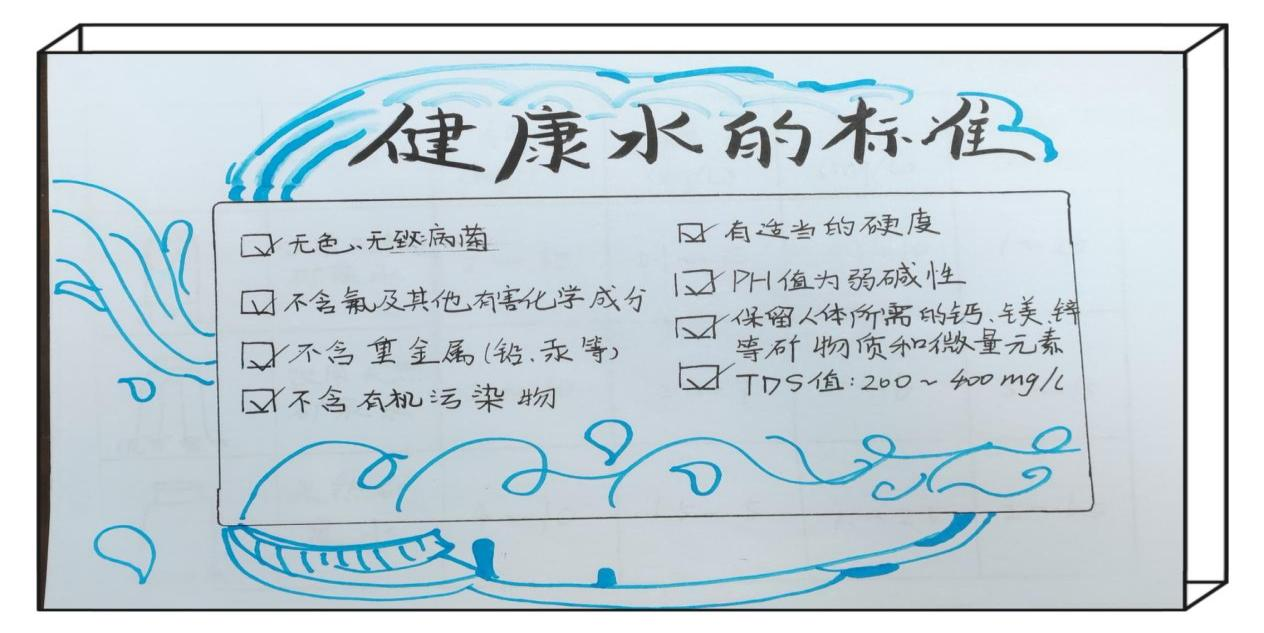 健康水的标准
无色、无致病菌
不含氟及其他有害化学成分
不含重金属(铅、汞等)
不含有机污染物
有适当的硬度
PH值为弱碱性
保留人体所需的钙、镁、锌
等矿物质和微量元素
TDS值:200~400mg/L